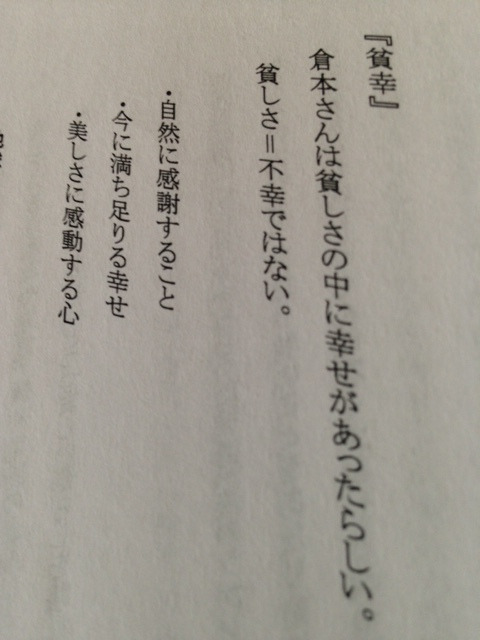 『貧幸』
倉本さんは貧しさの中に幸せがあったらしい。
貧しさ＝不幸ではない。
・自然に感謝すること
・今に満ち足りる幸せ
・美しさに感動する心